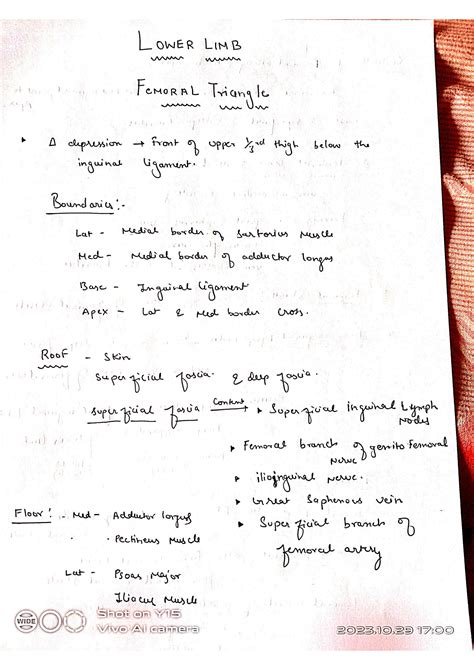 LOWER LIMB
FEMORAL TriangLe
‣ Δ depression → Front of upper 1/3rd thigh below the
inguinal ligament.
Boundaries:-
Lat - Medial border of Sartorius Muscle
Med - Medial border of adductor longus
Base - Inguinal ligament
Apex - Lat & Med border cross.
Roof - Skin
Superficial fascia & deep fascia.
Superficial fascia Content → ‣ Superficial inguinal Lymph
Nodes
‣ Femoral branch of genito femoral
Nerve
‣ ilioinguinal nerve.
‣ Great Saphenous vein
‣ Superficial branch of
femoral artery
Floor: - Med - Adductor longus
Pectineus Muscle
Lat - Psoas Major
Iliacus Muscle
WIDE
Shot on Y15
Vivo AI camera
2023.10.29 17:00